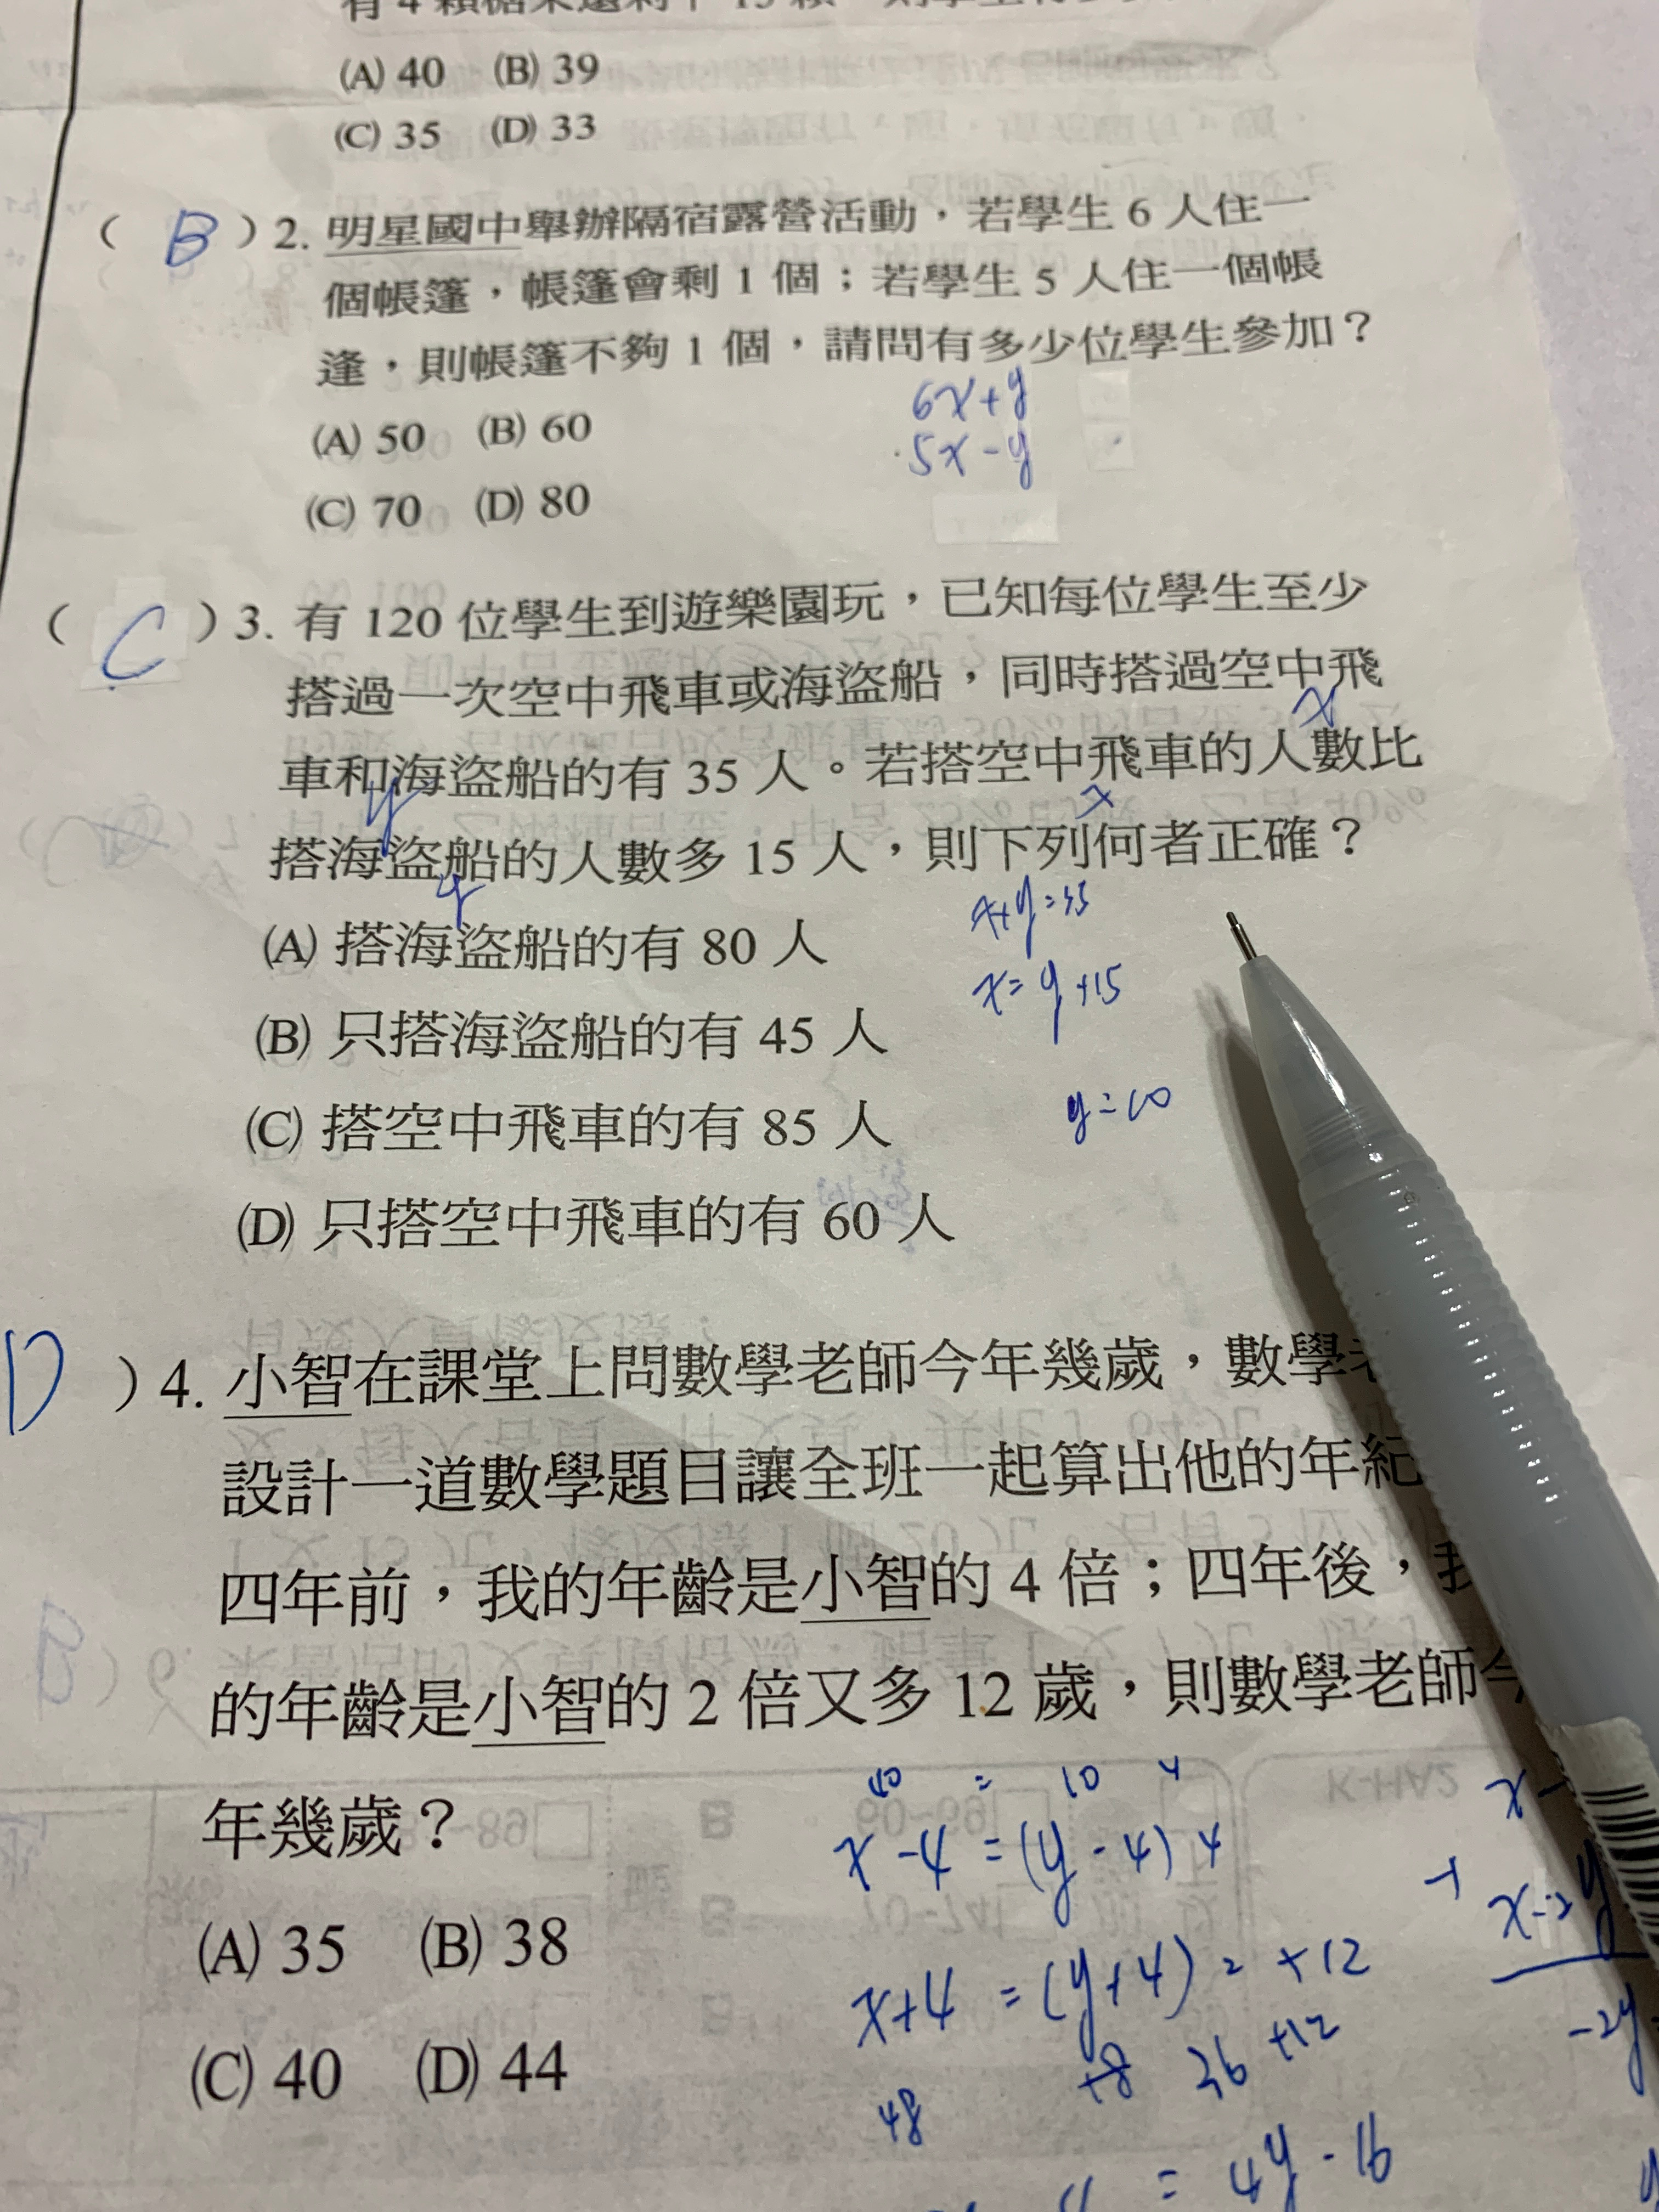 (A) 40 (B) 39
(C) 35 (D) 33
( B ) 2. 明星國中舉辦隔宿露營活動，若學生 6 人住一
個帳篷，帳篷會剩 1 個；若學生 5 人住一個帳
逢，則帳篷不夠 1 個，請問有多少位學生參加？
6x+y
(A) 50 (B) 60
5x-y
(C) 70 (D) 80
( C ) 3. 有 120 位學生到遊樂園玩，已知每位學生至少
搭過一次空中飛車或海盜船，同時搭過空中飛
x
車和海盜船的有 35 人。若搭空中飛車的人數比
y
x
搭海盜船的人數多 15 人，則下列何者正確？
y
x+y=35
(A) 搭海盜船的有 80 人
x=y+15
(B) 只搭海盜船的有 45 人
y=10
(C) 搭空中飛車的有 85 人
(D) 只搭空中飛車的有 60 人
D ) 4. 小智在課堂上問數學老師今年幾歲，數學
設計一道數學題目讓全班一起算出他的年紀
四年前，我的年齡是小智的 4 倍；四年後，我
的年齡是小智的 2 倍又多 12 歲，則數學老師今
年幾歲？
40 = 10 4
x-4=(y-4)4
(A) 35 (B) 38
x+4=(y+4)2+12
+8 36 +12
(C) 40 (D) 44
48
x-2y
-2y
= 4y-16